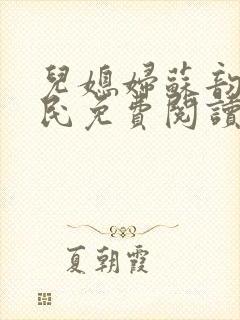 兒媳婦蘇韵
民免費閱讀
夏朝霞